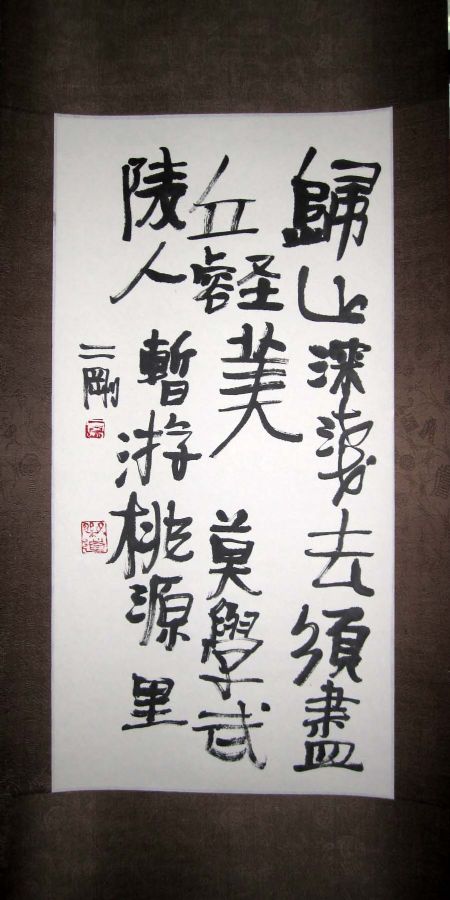 歸山深淺去須盡
丘壑美 莫學武
陵人 暫游桃源里
二剛